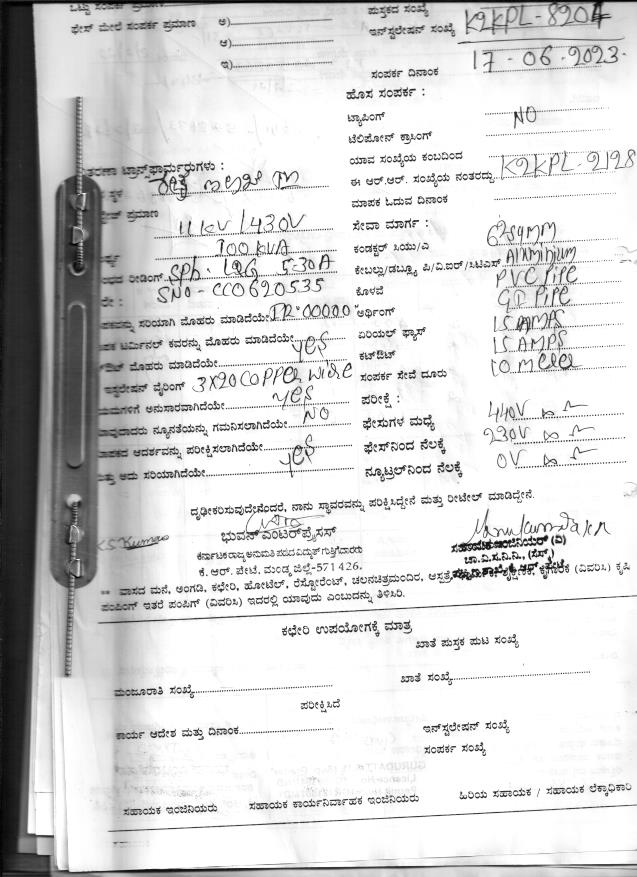 ಒಟ್ಟು ಸಂಪರ್ಕ ಪ್ರಮಾಣ
ಪುಸ್ತಕದ ಸಂಖ್ಯೆ
ಫೇಸ್ ಮೇಲೆ ಸಂಪರ್ಕ ಪ್ರಮಾಣ ಅ)
ಇನ್‌ಸ್ಟಲೇಷನ್ ಸಂಖ್ಯೆ K2KPL-8204
ಆ)
ಇ)
ಸಂಪರ್ಕ ದಿನಾಂಕ 17-06-2023.
ಹೊಸ ಸಂಪರ್ಕ :
ಟ್ಯಾಪಿಂಗ್ NO
ಟೆಲಿಪೋನ್ ಕ್ರಾಸಿಂಗ್
ಯಾವ ಸಂಖ್ಯೆಯ ಕಂಬದಿಂದ
ತರಣಾ ಟ್ರಾನ್ಸ್‌ಫಾರ್ಮರುಗಳು :
ಈ ಆರ್.ಆರ್. ಸಂಖ್ಯೆಯ ನಂತರದ್ದು K2KPL-2128
ಮಾಪಕ ಓದುವ ದಿನಾಂಕ
ಪ್ರಮಾಣ 11KV/430V
ಸೇವಾ ಮಾರ್ಗ :
100KVA
ಕಂಡಕ್ಟರ್ ಸಿಯು/ಎ 6sqmm
ರೀಡಿಂಗ್ 5-30A
ಕೇಬಲ್ಲು/ಡಬ್ಲ್ಯೂ ಪಿ/ವಿ.ಐರ್/ಸಿಟಿಎಸ್ Aluminium
SNO-CC0620535
ಕೊಳವೆ PVC PIPE
ಸರಿಯಾಗಿ ಮೊಹರು ಮಾಡಿದೆಯೇ IR"00000"
ಅರ್ಥಿಂಗ್ GI PIPE
ಟರ್ಮಿನಲ್ ಕವರನ್ನು ಮೊಹರು ಮಾಡಿದೆಯೇ YES
ಏರಿಯಲ್ ಫ್ಯಾಸ್ 15 AMPS
ಮೊಹರು ಮಾಡಿದೆಯೇ
ಕಟ್‌ಔಟ್ 15 AMPS
ವೈರಿಂಗ್ 3X20 COPPER WIRE
ಸಂಪರ್ಕ ಸೇವೆ ದೂರು 10 meter
ಅನುಸಾರವಾಗಿದೆಯೇ YES
ಪರೀಕ್ಷೆ :
ನ್ಯೂನತೆಯನ್ನು ಗಮನಿಸಲಾಗಿದೆಯೇ NO
ಫೇಸುಗಳ ಮಧ್ಯೆ 440V
ಆದರ್ಶವನ್ನು ಪರೀಕ್ಷಿಸಲಾಗಿದೆಯೇ YES
ಫೇಸ್‌ನಿಂದ ನೆಲಕ್ಕೆ 230V
ಅದು ಸರಿಯಾಗಿದೆಯೇ YES
ನ್ಯೂಟ್ರಲ್‌ನಿಂದ ನೆಲಕ್ಕೆ 0V
ದೃಢೀಕರಿಸುವುದೇನೆಂದರೆ, ನಾನು ಸ್ಥಾವರವನ್ನು ಪರಿಕ್ಷಿಸಿದ್ದೇನೆ ಮತ್ತು ರೀಟೇಲ್ ಮಾಡಿದ್ದೇನೆ.
KS Kumar
ಭುವನ್ ಎಂಟರ್‌ಪ್ರೈಸಸ್
ಕರ್ನಾಟಕ ರಾಜ್ಯ ಅನುಮತಿ ಪಡೆದ ವಿದ್ಯುತ್ ಗುತ್ತಿಗೆದಾರರು
ಕೆ. ಆರ್. ಪೇಟೆ. ಮಂಡ್ಯ ಜಿಲ್ಲೆ-571426.
ಸಹಾಯಕ ಇಂಜಿನಿಯರ್ (ವಿ)
ಚಾ.ವಿ.ಸ.ನಿ.ನಿ., (ಸೆಸ್ಕ್)
** ವಾಸದ ಮನೆ, ಅಂಗಡಿ, ಕಛೇರಿ, ಹೋಟೆಲ್, ರೆಸ್ಟೋರೆಂಟ್, ಚಲನಚಿತ್ರಮಂದಿರ, ಆಸ್ಪತ್ರೆ, ಕೈಗಾರಿಕೆ (ವಿವರಿಸಿ) ಕೃಷಿ
ಪಂಪಿಂಗ್ ಇತರೆ ಪಂಪಿಗ್ (ವಿವರಿಸಿ) ಇದರಲ್ಲಿ ಯಾವುದು ಎಂಬುದನ್ನು ತಿಳಿಸಿರಿ.
ಕಛೇರಿ ಉಪಯೋಗಕ್ಕೆ ಮಾತ್ರ
ಖಾತೆ ಪುಸ್ತಕ ಪುಟ ಸಂಖ್ಯೆ
ಮಂಜೂರಾತಿ ಸಂಖ್ಯೆ
ಖಾತೆ ಸಂಖ್ಯೆ
ಪರೀಕ್ಷಿಸಿದೆ
ಕಾರ್ಯ ಆದೇಶ ಮತ್ತು ದಿನಾಂಕ
ಇನ್‌ಸ್ಟಲೇಷನ್ ಸಂಖ್ಯೆ
ಸಂಪರ್ಕ ಸಂಖ್ಯೆ
ಸಹಾಯಕ ಇಂಜಿನಿಯರು ಸಹಾಯಕ ಕಾರ್ಯನಿರ್ವಾಹಕ ಇಂಜಿನಿಯರು ಹಿರಿಯ ಸಹಾಯಕ / ಸಹಾಯಕ ಲೆಕ್ಕಾಧಿಕಾರಿ